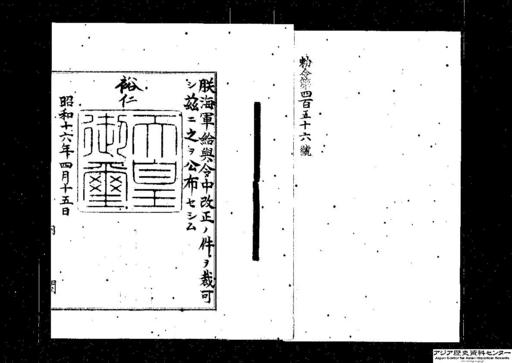 勅令第四百五十六號
朕海軍給與令中改正ノ件ヲ裁可
シ茲ニ之ヲ公布セシム
裕仁
天皇
御璽
昭和十六年四月十五日
アジア歴史資料センター
Japan Center for Asian Historical Records